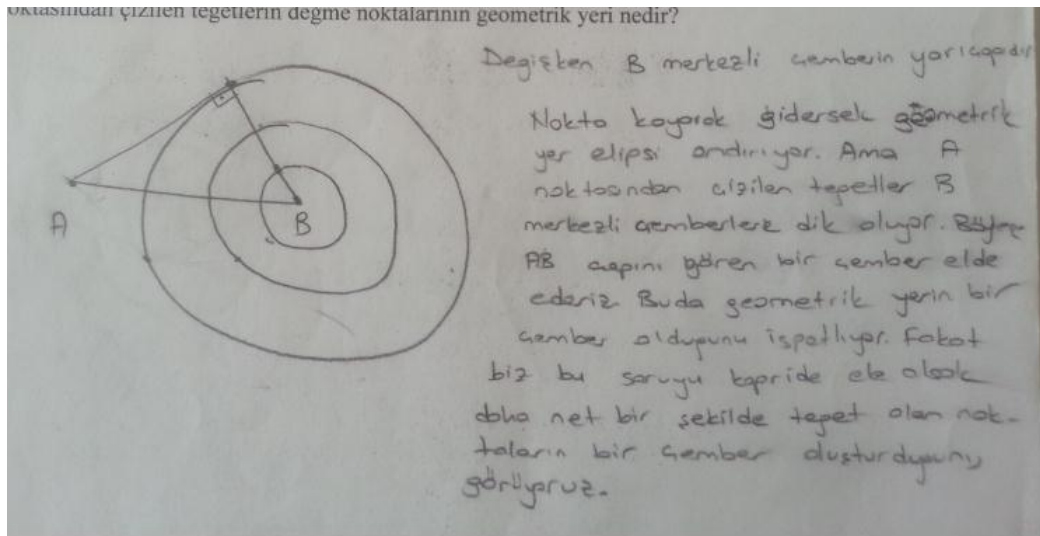 oktasından çizilen teğetlerin değme noktalarının geometrik yeri nedir?
Değişken B merkezli çemberin yarıçapıdır
Nokta koyarak gidersek geometrik
yer elipsi andırıyor. Ama A
noktasından çizilen tegetler B
merkezli çemberlere dik oluyor. Böylece
AB çapını gören bir çember elde
ederiz. Buda geometrik yerin bir
çember olduğunu ispatlıyor. Fakat
biz bu soruyu kapride ele alsak
daha net bir şekilde teget olan nok-
taların bir çember oluşturduğunu
görüyoruz.
A
B